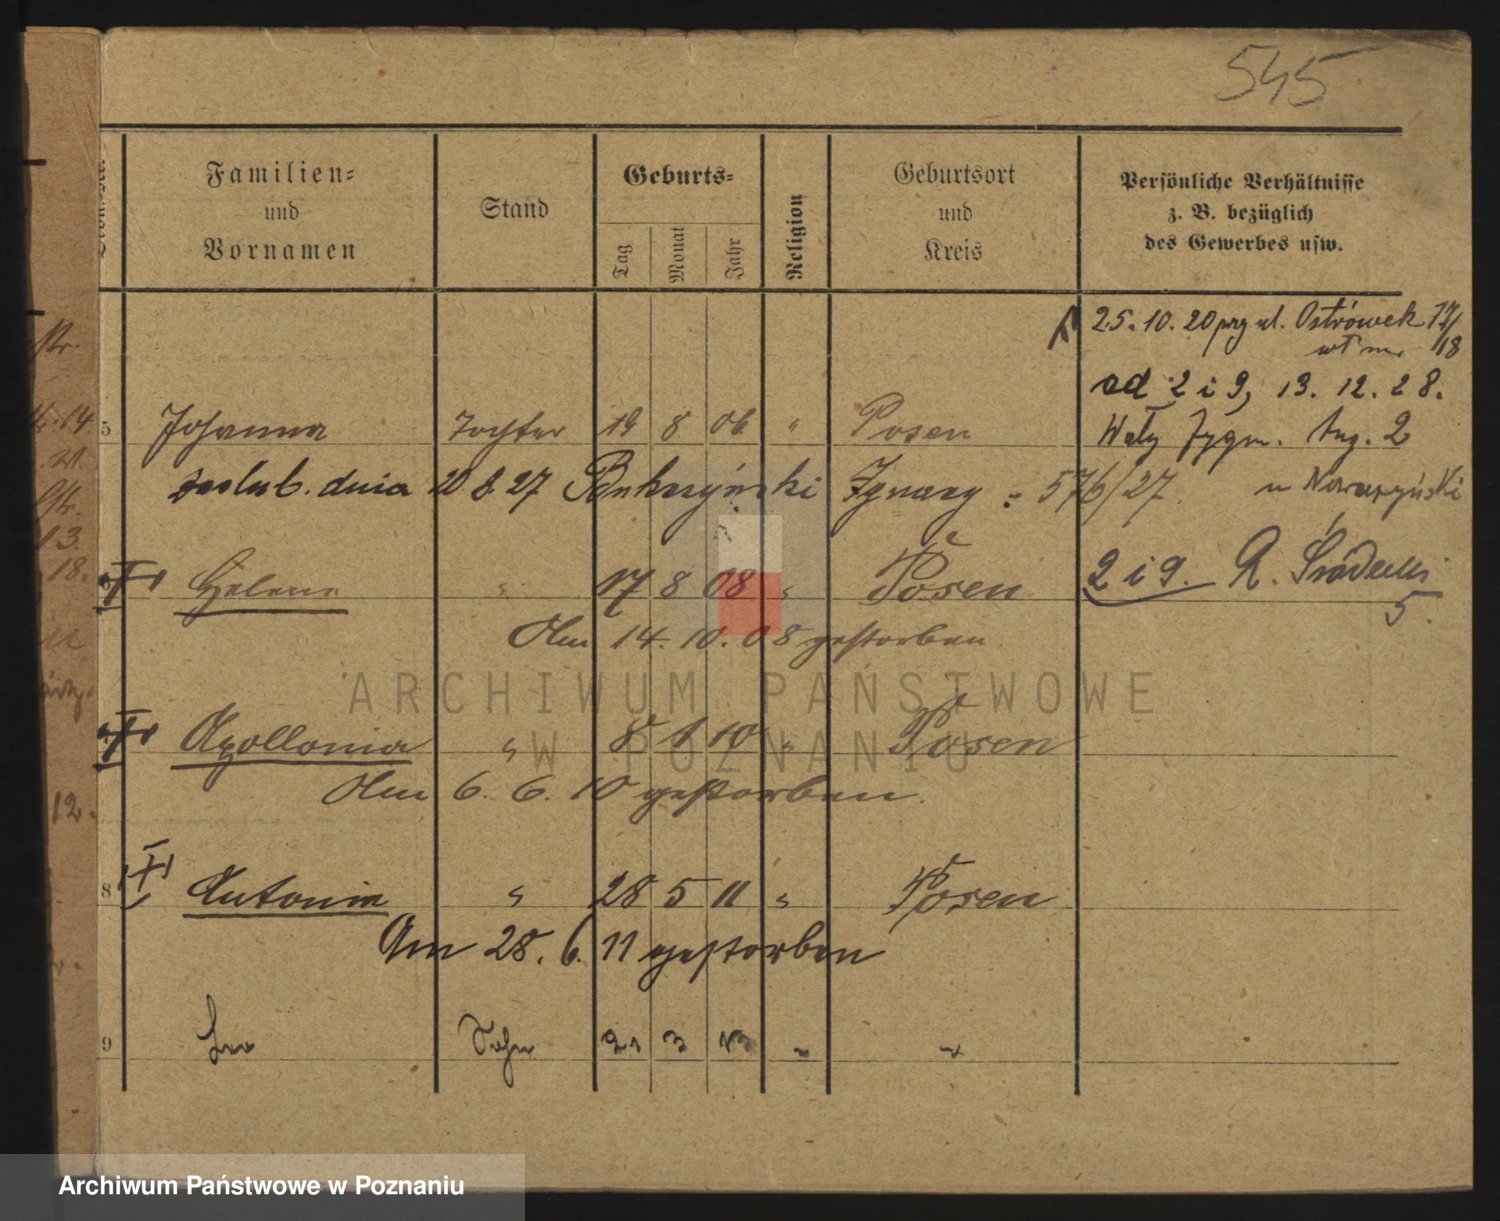 545
Familien=
und
Vornamen
Stand
Geburts=
Tag
Monat
Jahr
Religion
Geburtsort
und
Kreis
Persönliche Verhältnisse
z. B. bezüglich
des Gewerbes usw.
25. 10. 20 prz ul. Ostrówek 17/
18
ad 2 i 9, 13. 12. 28.
5 Johanna Tochter 19 8 06 " Posen
Wały Zygm. Aug. 2
zaślub. dnia 20 8. 27 Ignacy = 576/27
6 Helene " 17 8 08 " Posen
2 i 9. R. Śródecki
5.
Am 14. 10. 08 gestorben
ARCHIWUM PAŃSTWOWE
W POZNANIU
7 Apollonia " 8 1 10 " Posen
Am 6. 6. 10 gestorben.
12.
8 Antonia " 28 5 11 " Posen
Am 28. 6. 11 gestorben
9 Leo Sohn 21 3 13 " "
Archiwum Państwowe w Poznaniu